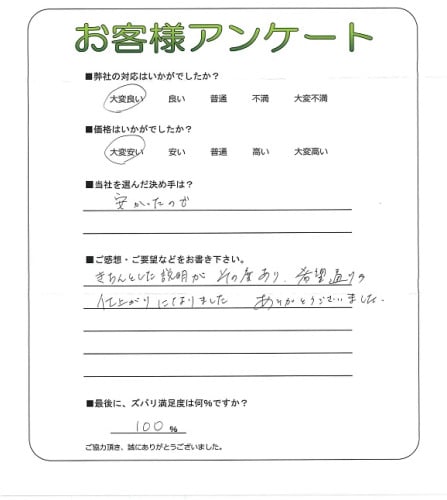 お客様アンケート
■弊社の対応はいかがでしたか?
大変良い 良い 普通 不満 大変不満
■価格はいかがでしたか?
大変安い 安い 普通 高い 大変高い
■当社を選んだ決め手は?
安かったので
■ご感想・ご要望などをお書き下さい。
きちんとした説明が その度あり、希望通りの
仕上がりになりました ありがとうございました。
■最後に、ズバリ満足度は何%ですか?
100 %
ご協力頂き、誠にありがとうございました。